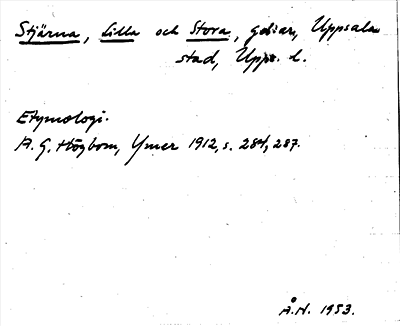 Stjärna, Lilla och Stora, gårdar, Uppsala
stad, Upps. l.
Etymologi.
A. G. Högbom, Ymer 1912, s. 284, 287.
Å.N. 1953.